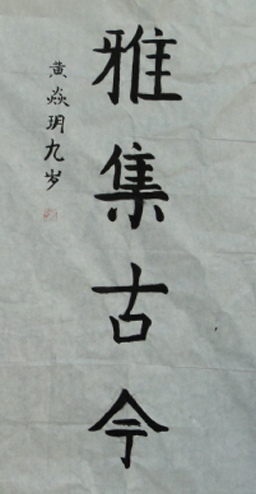 雅集古今
黄焱玥九岁